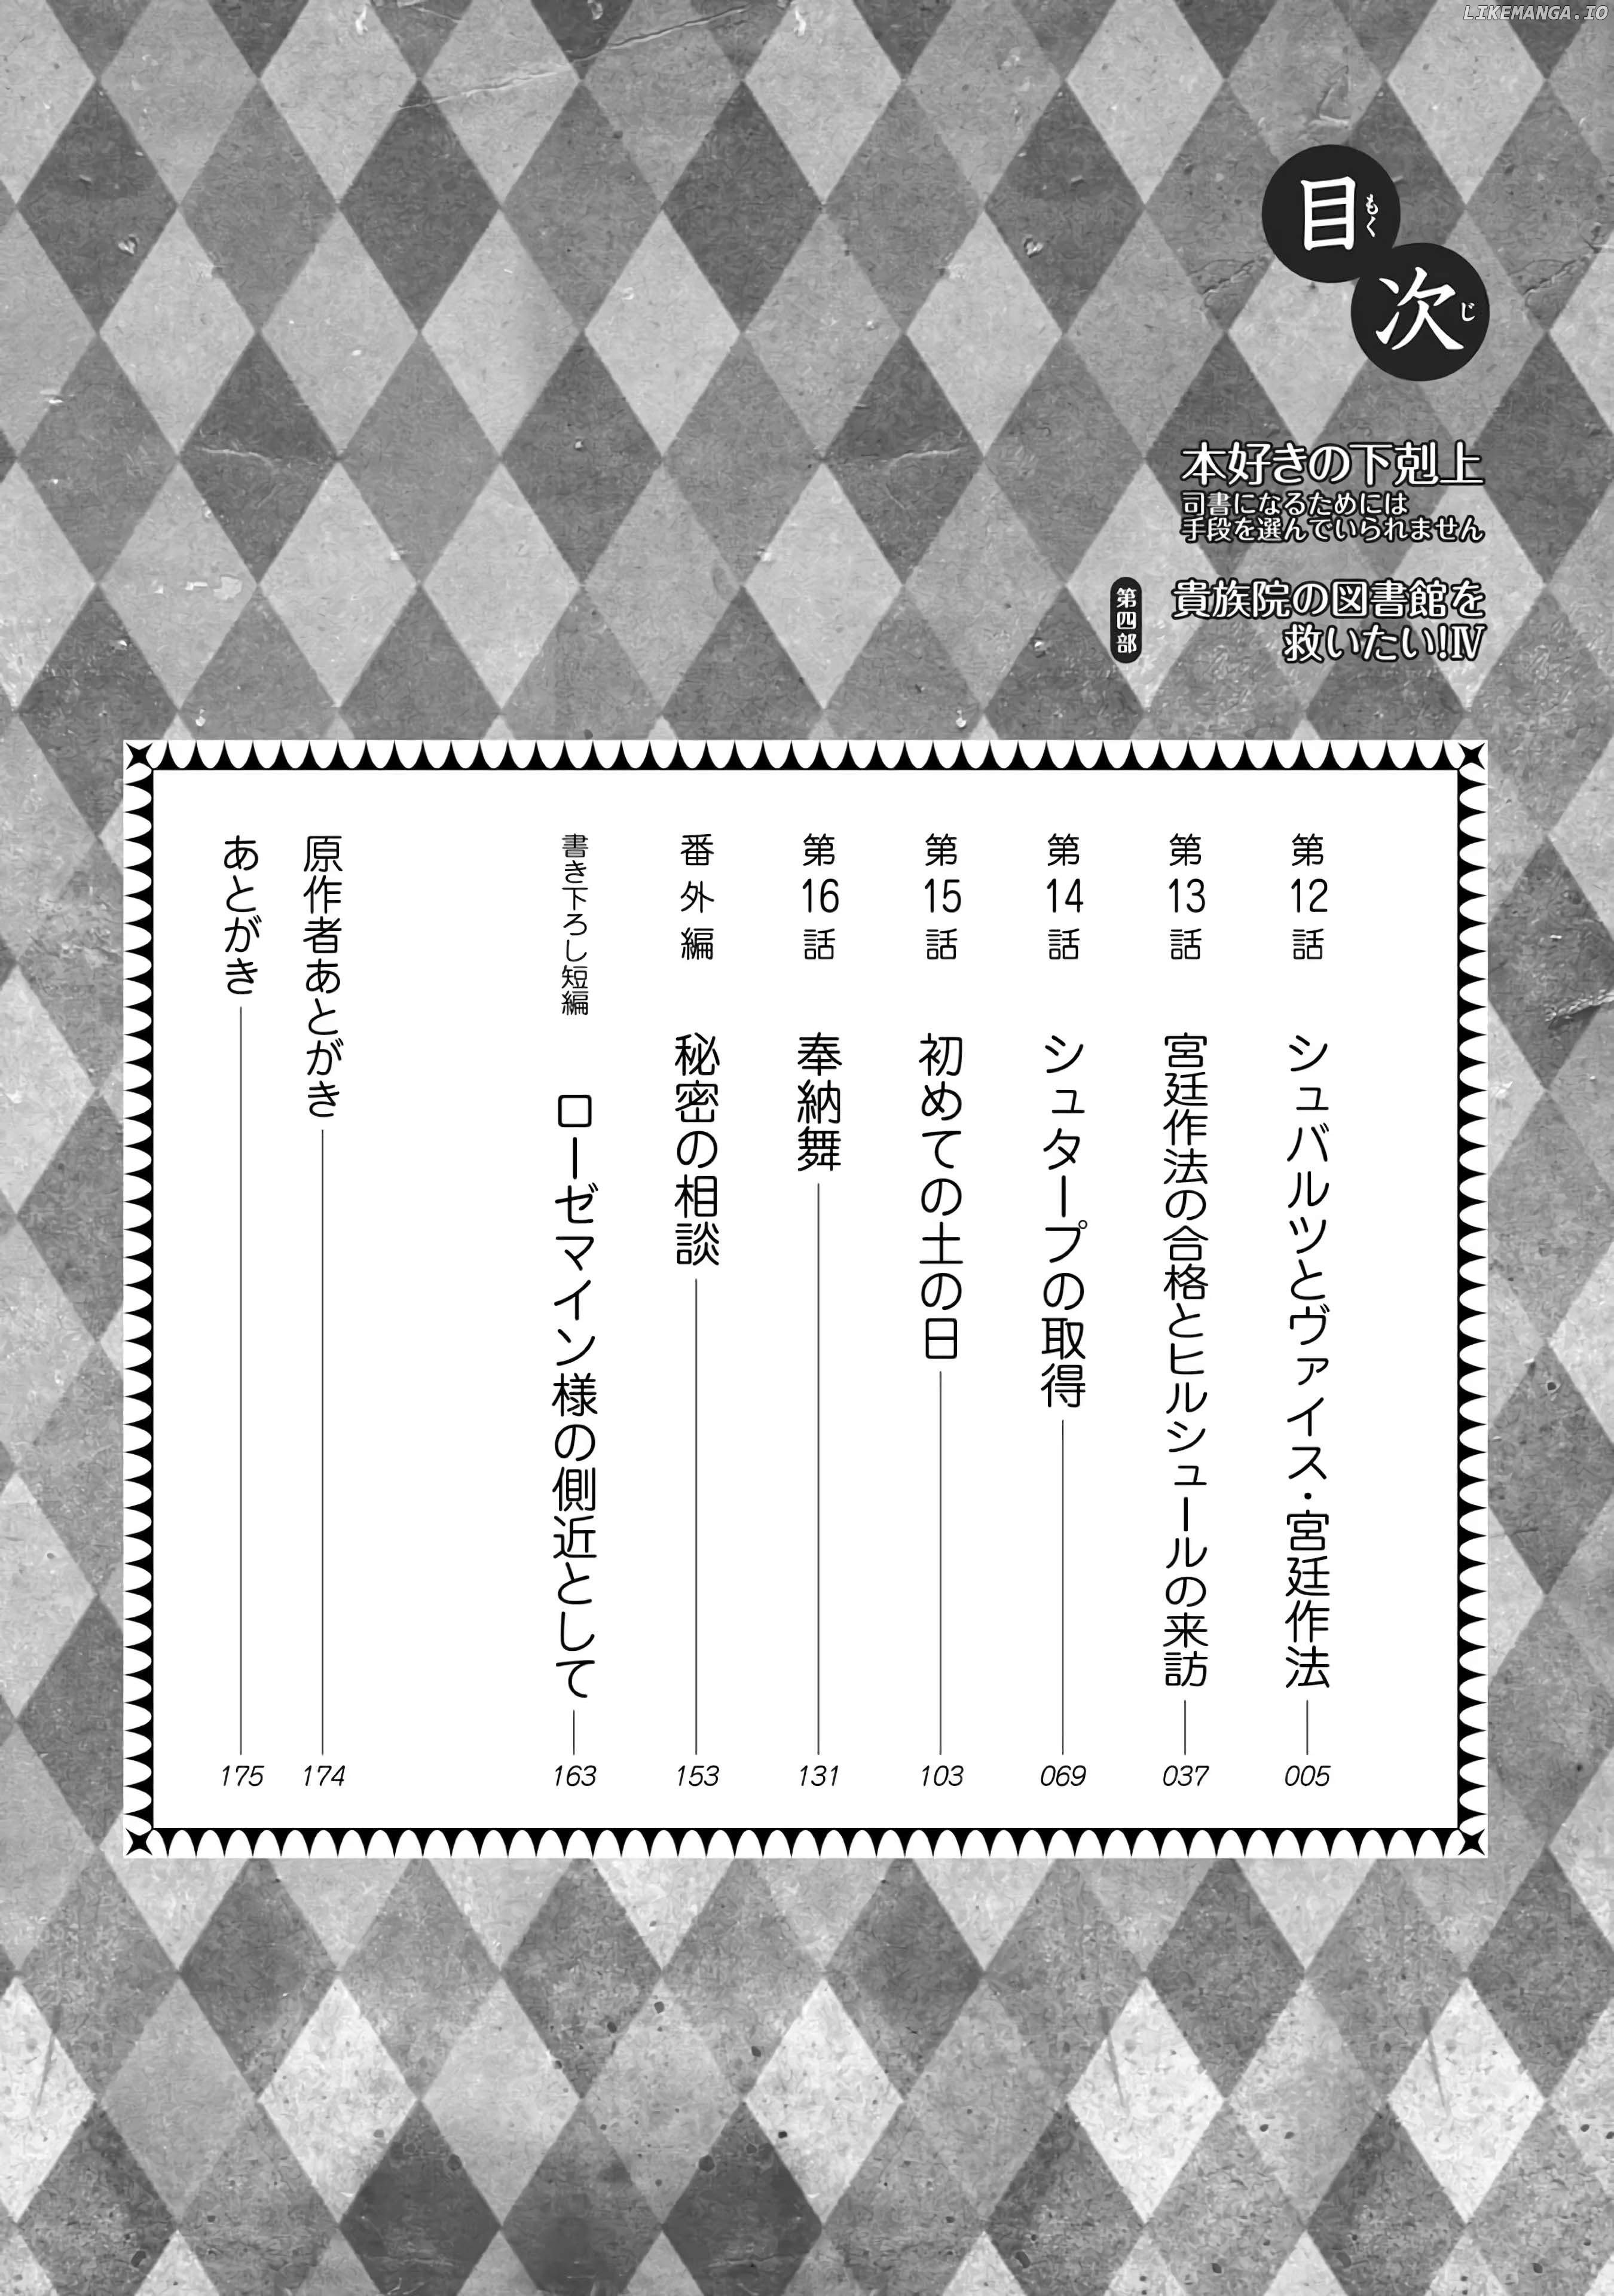 LIKEMANGA.IO
目次
もくじ
本好きの下剋上
司書になるためには
手段を選んでいられません
第四部
貴族院の図書館を
救いたい!Ⅳ
第12話 シュバルツとヴァイス・宮廷作法 005
第13話 宮廷作法の合格とヒルシュールの来訪 037
第14話 シュタープの取得 069
第15話 初めての土の日 103
第16話 奉納舞 131
番外編 秘密の相談 153
書き下ろし短編 ローゼマイン様の側近として 163
原作者あとがき 174
あとがき 175